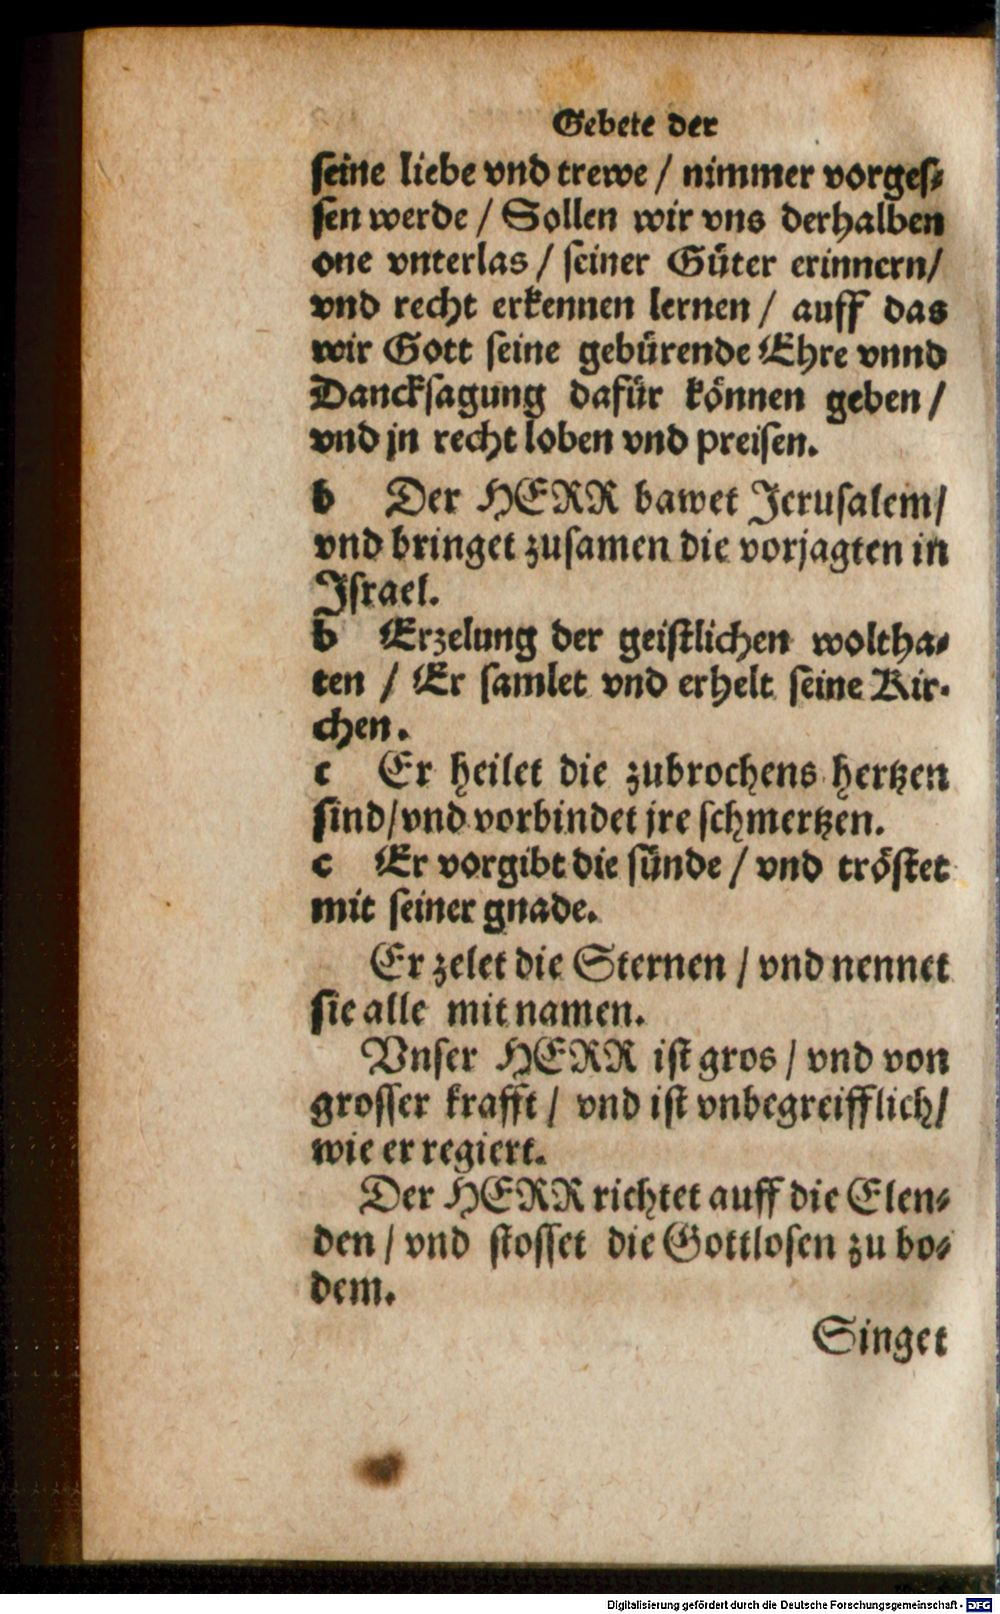 Gebete der
seine liebe vnd trewe / nimmer vorges-
sen werde / Sollen wir vns derhalben
one vnterlas / seiner Güter erinnern/
vnd recht erkennen lernen / auff das
wir Gott seine gebürende Ehre vnnd
Dancksagung dafür können geben /
vnd jn recht loben vnd preisen.
b Der HERR bawet Jerusalem/
vnd bringet zusamen die vorjagten in
Israel.
b Erzelung der geistlichen woltha-
ten / Er samlet vnd erhelt seine Kir-
chen.
c Er heilet die zubrochens hertzen
sind/vnd vorbindet jre schmertzen.
c Er vorgibt die sünde / vnd tröstet
mit seiner gnade.
Er zelet die Sternen / vnd nennet
sie alle mit namen.
Vnser HERR ist gros / vnd von
grosser krafft / vnd ist vnbegreifflich/
wie er regiert.
Der HERR richtet auff die Elen-
den / vnd stosset die Gottlosen zu bo-
dem.
Singet
Digitalisierung gefördert durch die Deutsche Forschungsgemeinschaft - DFG